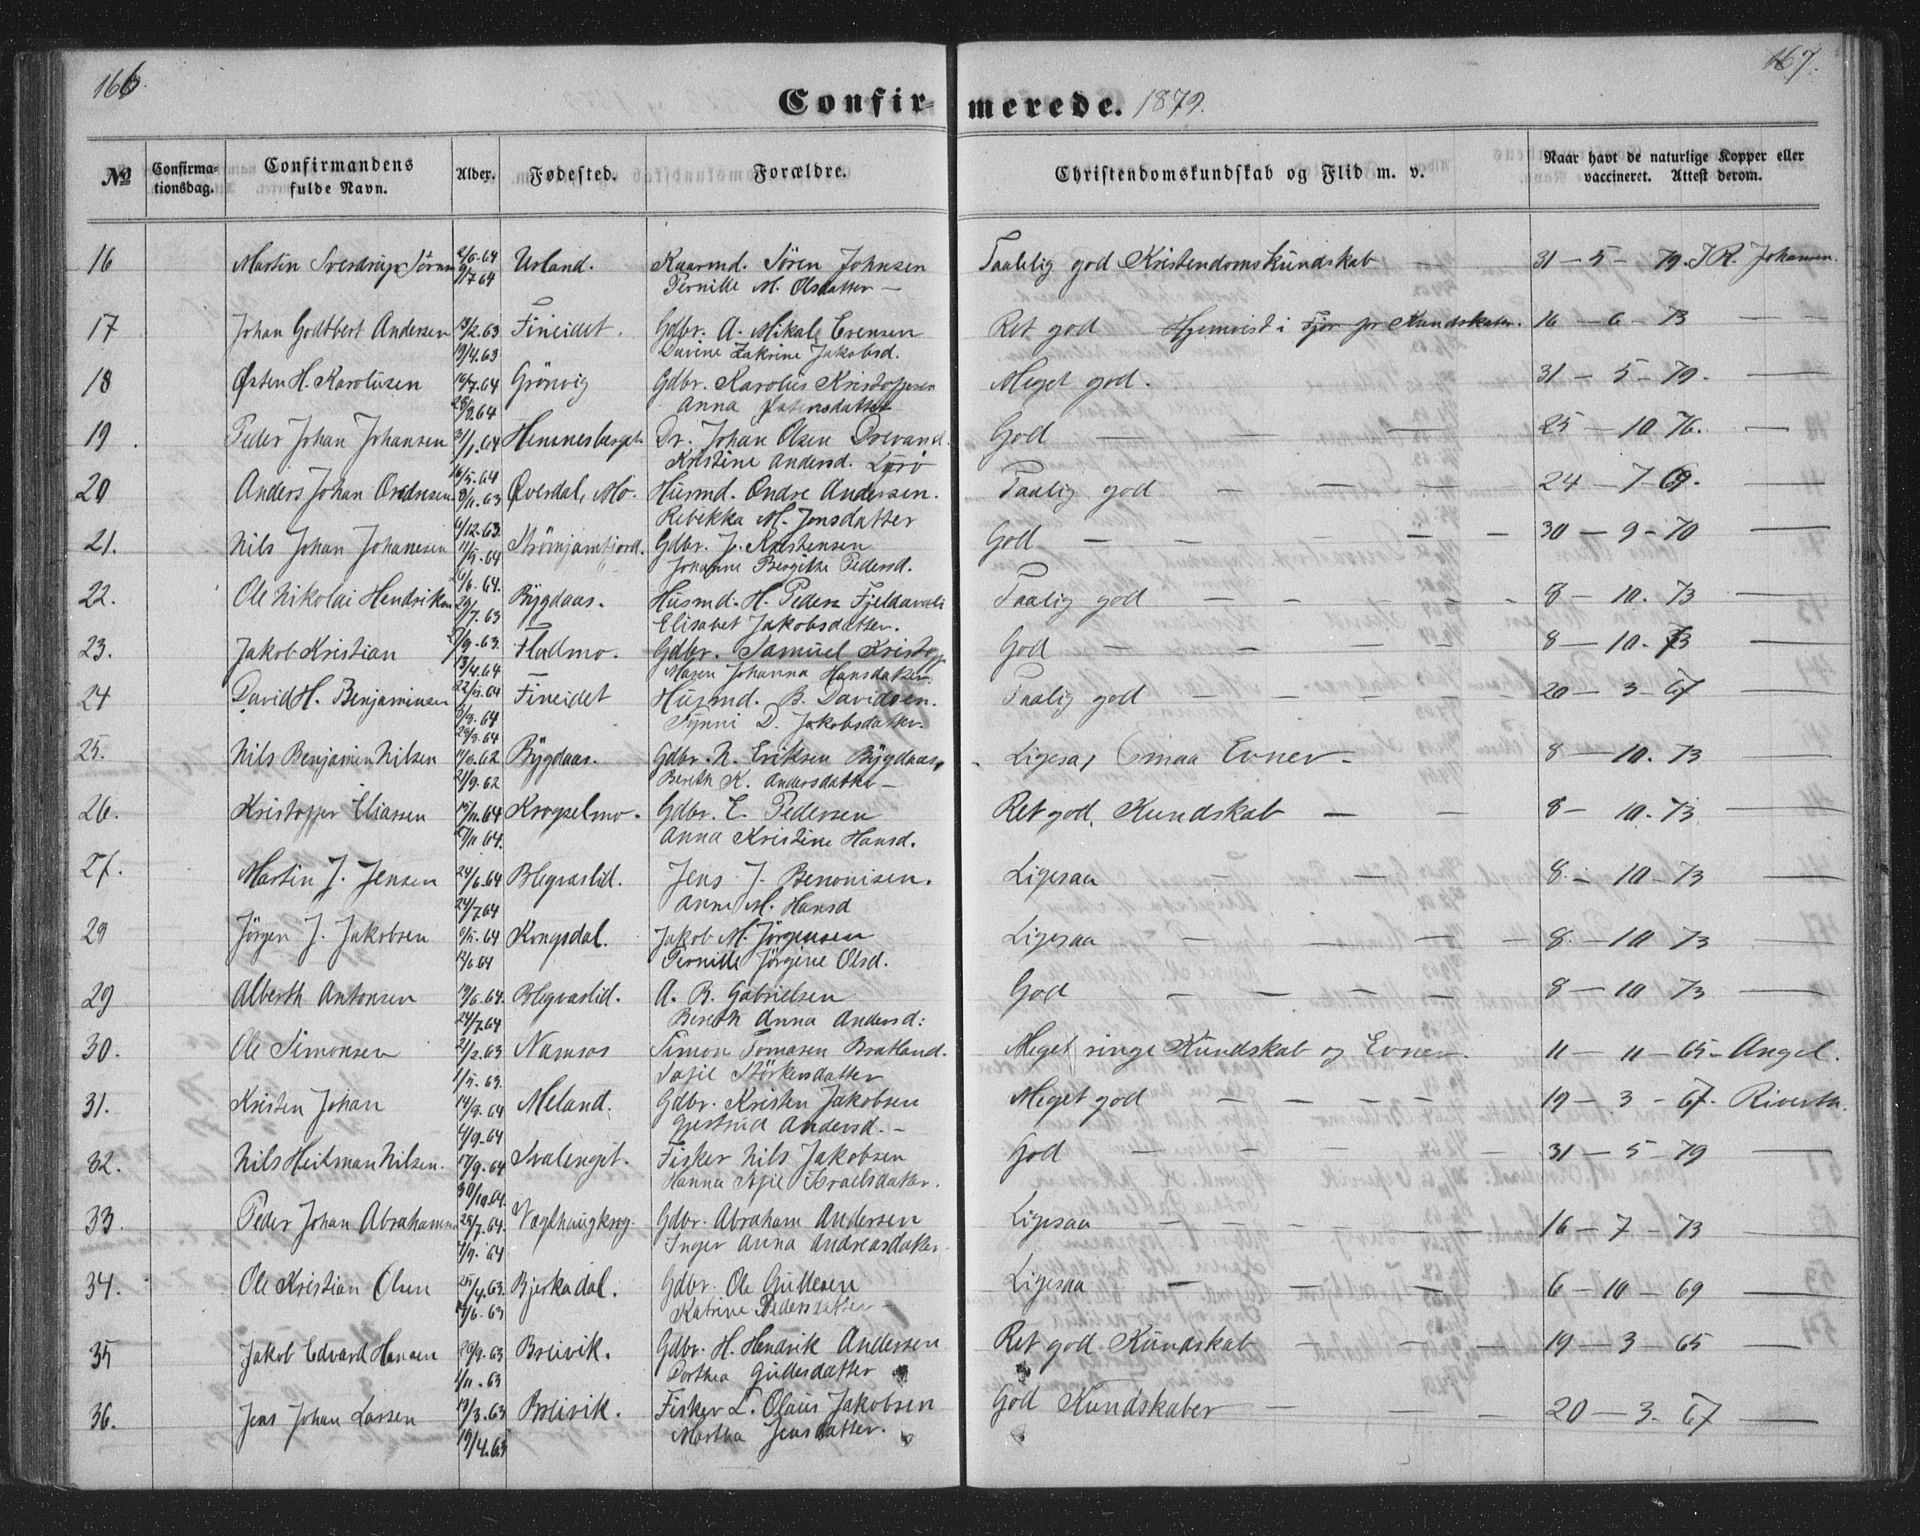 166.
167.
Confir- merede. 1879.
No Confirma- tionsdag. Confirmandens fulde Navn. Alder. Fødested. Forældre. Christendomskundskab og Flid m. v. Naar havt de naturlige Kopper eller vaccineret. Attest derom.
16 Martin Sverdrup Sören 2/6.64 Urland. Kaarmd. Sören Johnsen Taalelig god Kristendomskundskab — 31 – 5 – 79. J R. Johansen.
9/7 64 Pernille M. Olsdatter —
17 Johan Godtbert Andersen 13/2.63 Fineidet. Gdbr. A. Mikal Evensen Ret god Hjemvist i Fjor for Kundskaber. 16 – 6 – 73 —
19/4.63 Davine Zakrine Jakobsd.
18 Østen H. Karolusen 16/7.64 Grönvig Gdbr. Karolus Kristoffersen Meget god. 31 – 5 – 79. —
28/8.64 Anna
19 Peder Johan Johansen 31/1.64 Hemnesberget Dr. Johan Olsen Drevand. God — — — — 25 – 10 76. —
16/5.64 Kristine Andersd.
20 Anders Johan Ordnesen 8/11.63 Øverdal, Mo. Husmd. Ondre Andersen. Taalig god — — — — 24 – 7 69. —
4/12.63. Rebekka M. Jensdatter
21. Nils Johan Johanesen 11/5.64 Strömjamfjord. Gdbr. J. Kristensen God — — — — 30 – 9 – 70 —
26/6.64. Johanne Bergithe Pedersd.
22. Ole Nikolai Hendriksen 29/7.63 Bÿgdaas. Husmd. H. Peders Fjeldavali Taalig god — — — — 8 – 10. 73 —
27/9.63. Elisabet Jakobsdatter.
23. Jakob Kristian 13/4.64 Flodmo. Gdbr. Samuel Kristof God — — — — 8 – 10. 73 —
22/5.64 Maren Johanna Hansdatter.
24 David H. Benjaminsen 9/3.64 Fineidet Husmd. B. Davidsen. Taalig god — — — — 20 – 3 – 67 —
28/3.64 Synni D. Jakobsdatter.
25. Nils Benjamin Nilsen 11/8.62 Bÿgdaas. Gdbr. N. Eriksen Bÿgdaas, Ligesa, Smaa Evner — 8 – 10. 73 —
21/9.62 Bereth K. Andersdatter —
26. Kristoffer Eliassen 13/11.64 Krogselmo. Gdbr. E. Pedersen Ret god, Kundskab — — 8 – 10. 73 —
27/11 64. Anna Kristine Hansd.
27. Martin J. Jensen 24/6.64 Blegvaslid. Jens J. Benonisen. Ligesaa — — — 8. – 10 – 73 —
24/7.64 Anne M. Hansd
29 Jörgen J. Jakobsen 9/5.64 Kongsdal. Jakob M. Jörgensen Ligesaa — — — — 8. – 10 73 —
12/6.64 Pernille Jörgine Olsd.
29 Alberth Antonsen 13/6.64. Blegvaslid. A. B. Gabrielsen God — — — — 8 – 10 73 —
24/7.64 Bereth Anna Andersd:
30. Ole Simonsen 21/2.63 Namsos Simon Tomasen Bratland. Meget ringe Kundskab og Evner. 11 – 11 – 65 – Angel.
1/5.63. Sofie Störkersdatter
31. Kristen Johan 14/8.64 Meland. Gdbr. Kristen Jakobsen Meget god — — — — 19 – 3 – 67.
4/9.64 Gjertrud Andersd. –
32. Nils Heitman Nilsen. 17/9.64 Svalenget. Fisker Nils Jakobsen God — — — — 31 – 5 – 79 —
30/10.64. Hanna Sofie Israelsdatter.
33. Peder Johan Abrahamsen 25/7.64. Vaglhaugkrog. Gdbr. Abraham Andersen Ligesaa — — — — 16 – 7 – 73 —
4/9.64 Inger Anna Andreasdatter
34. Ole Kristian Olsen 25/4.63. Bjerkadal. Gdbr. Ole Gullesen Ligesaa — — — — 6 – 10 – 69 —
14/6.63 Katrine Pedersdatter —
35 Jakob Edvard Hansen 20/9.63 Breivik. Gdbr. H. Hendrik Andersen Ret god Kundskab — — — 19 – 3 – 65 —
1/11.63 Dorthea Gullesdatter
36. Jens Johan Larsen 13/3.63 Breivik. Fisker L. Olaus Jakobsen God Kundskaber — — — 20 – 3. 67 —
19/4.63 Martha Jensdatter.